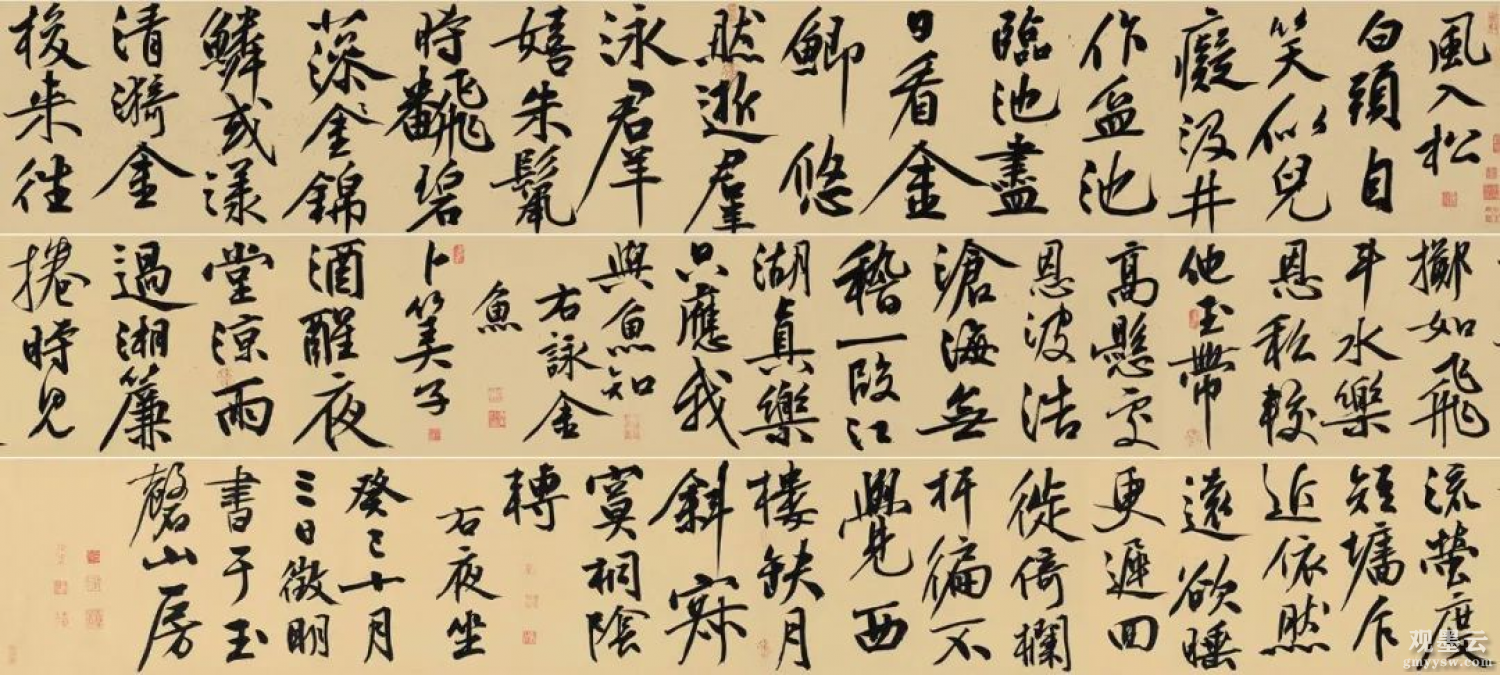 風入松
白頭自
笑似兒
癡汲井
作盆池
臨池盡
日看金
鯽悠
然逝羣
泳羣
嬉朱鬣
時飜碧
藻金錦
鱗或漾
清漪金
梭來往
擲如飛
斗水樂
恩私較
他玉帶
高懸處
恩波浩
滄海無
稽一段江
湖真樂
只應我
與魚知
右詠金
魚
卜算子
酒醒夜
堂涼雨
過湘簾
捲時見
流螢度
短墉乍
近依然
遠欲睡
更遲回
徙倚欄
杆徧不
覺西
樓缺月
斜寂
寞桐陰
轉
右夜坐
癸巳十月
三日徵明
書于玉
磬山房
观墨云
gmyysw.com